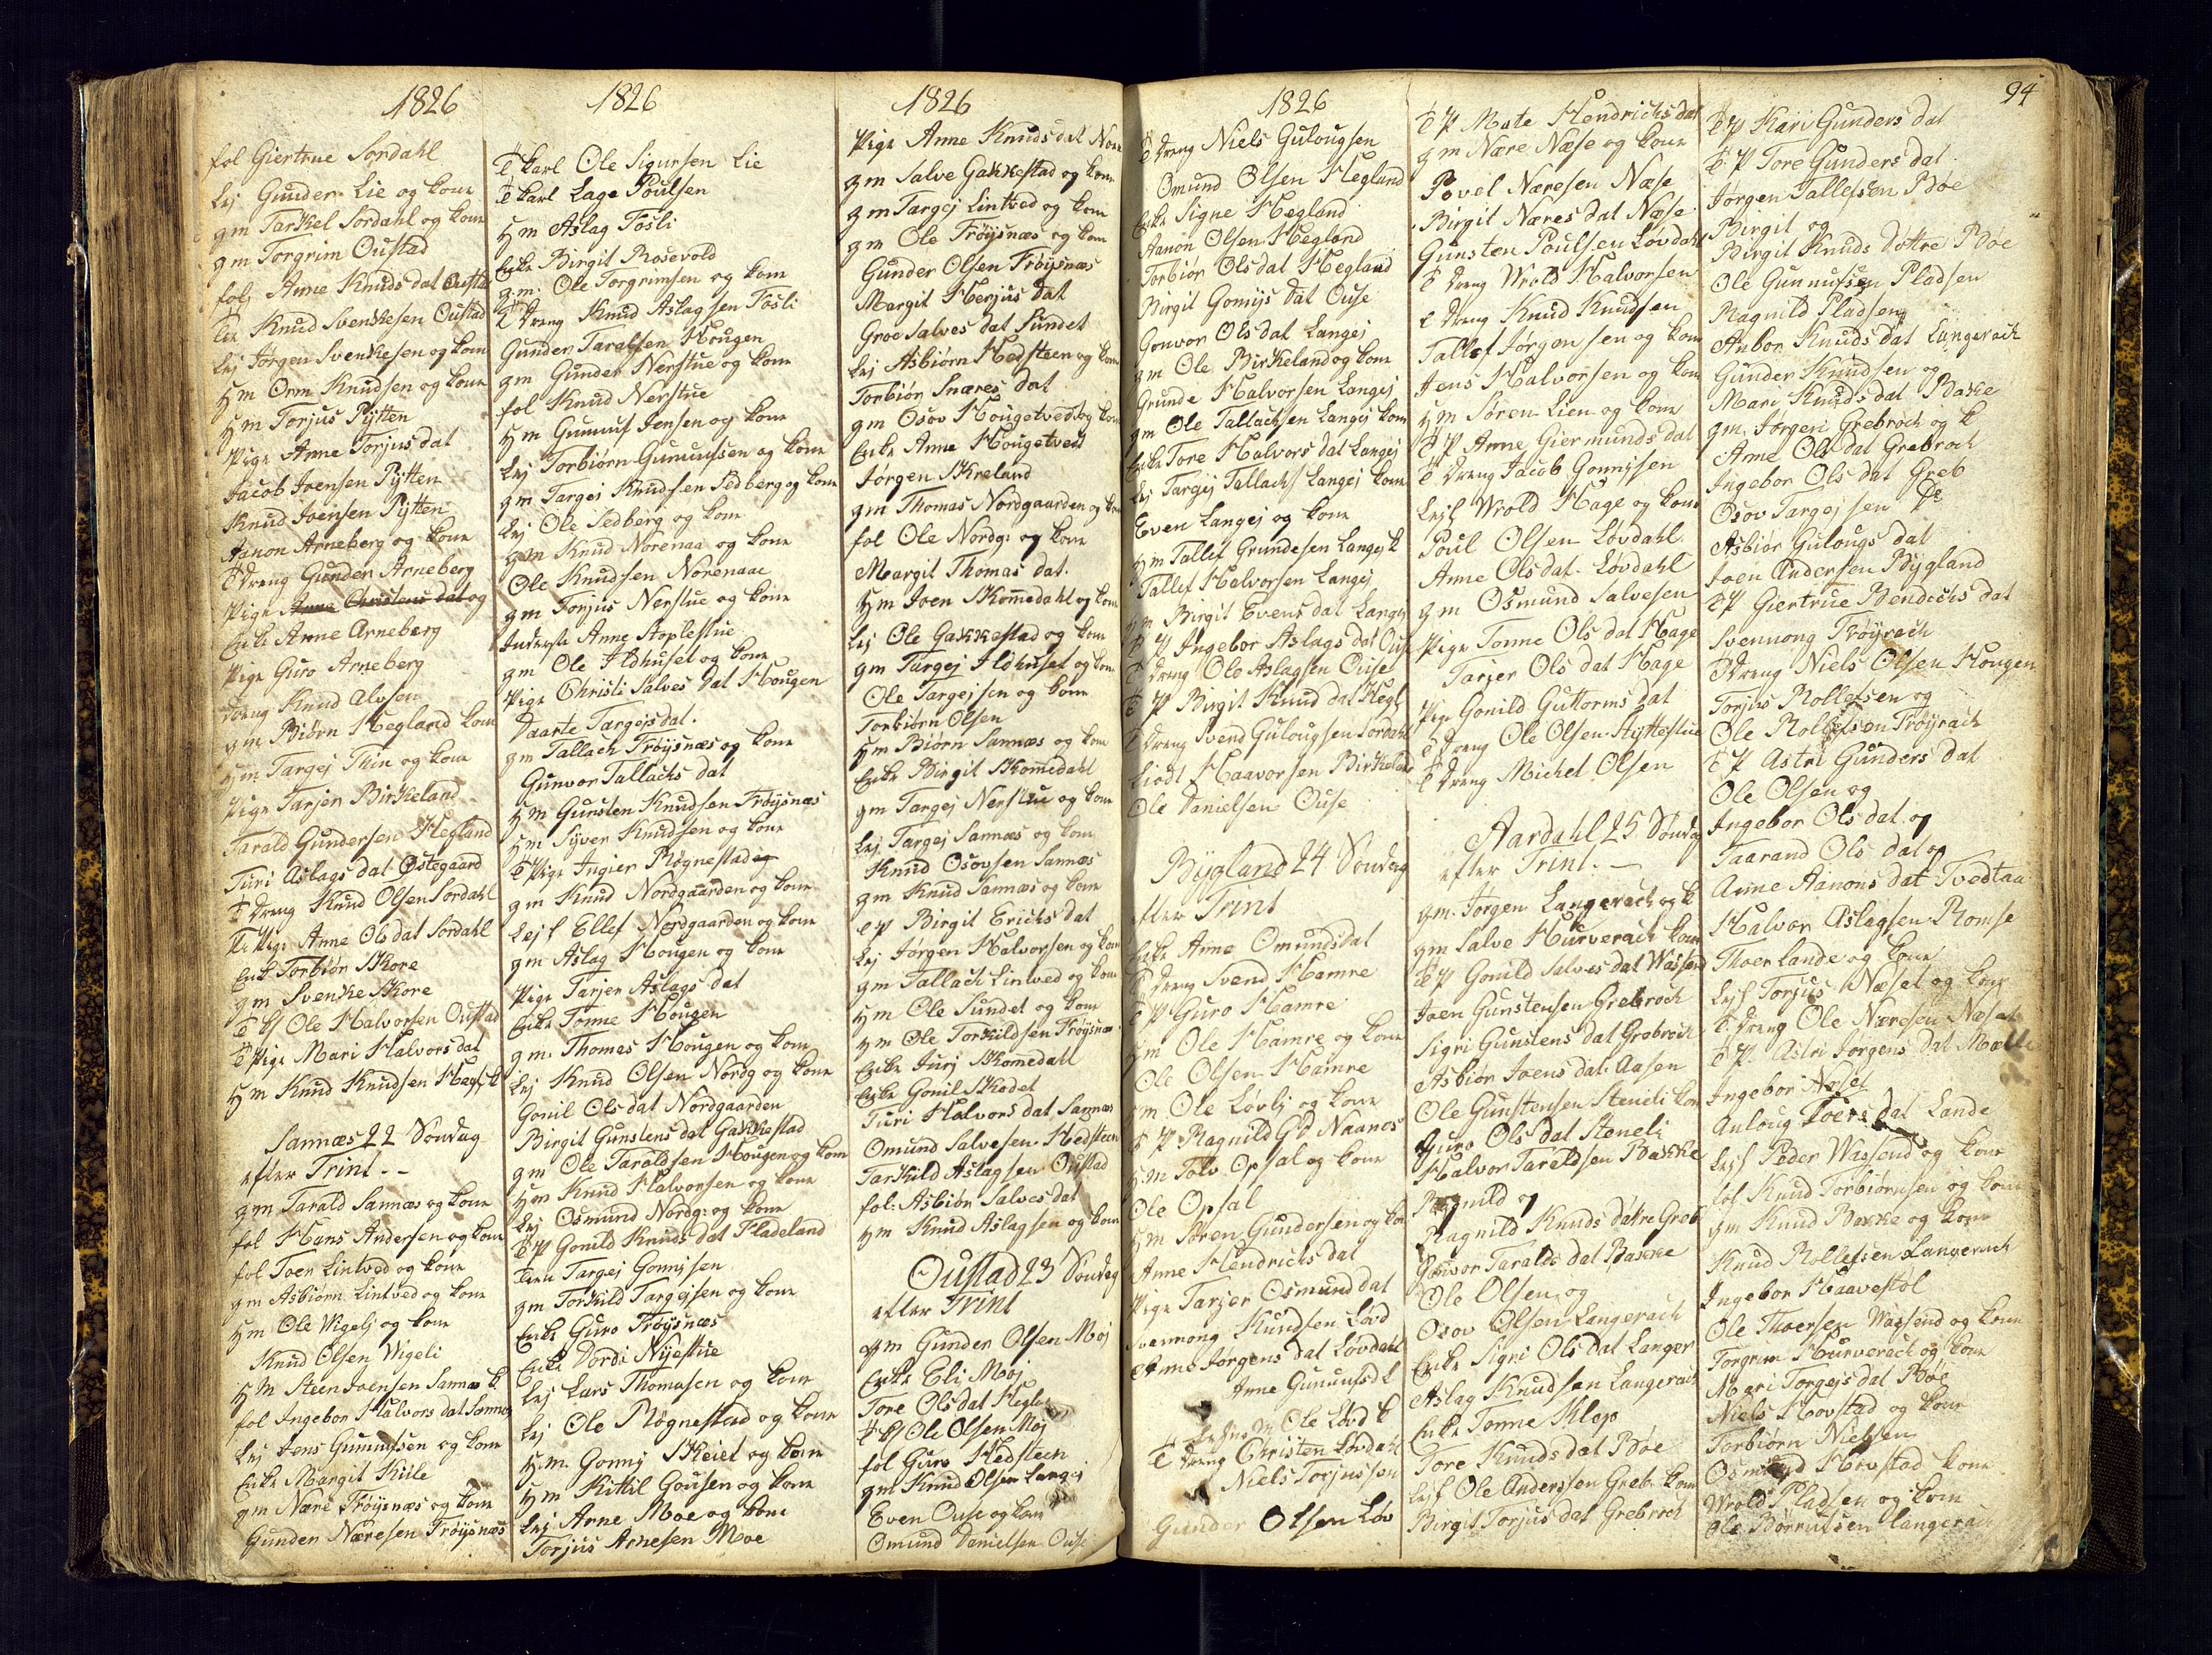 1826
fol Giertrue Sordahl
Lej Gunder Lie og kone
gm Tarkel Sordahl og kone
gm Torgrim Oustad
folj Anne Knuds dat Oustad
Knud Svenkesen Oustad
Lej Jørgen Svenkesen og kone
Hm Orm Knudsen og kone
Hm Torjus Pytten
Pige Anne Torjus dat
Jacob Joensen Pytten
Knud Joensen Pytten
Aanon Arneberg og kone
T Dreng Gunder Arneberg
Pige Anne Christens dat og
Enke Anne Arneberg
Pige Guro Arneberg
Dreng Knud Alvsen
gm Biørn Hegland kone
Hm Targej Thin og kone
Pige Tarjer Birkeland
Tarald Gundersen Hegland
Turi Aslags dat Østegaard
T Dreng Knud Olsen Sordahl
T Pige Anne Ols dat Sordahl
Enke Torbiør Skore
gm Svenke Skore
T Ole Halvorsen Oustad
T Pige Mari Halvors dat
Hm Knud Knudsen Hegl k
Sannæs 22 Søndag
efter Trint. -
gm Tarald Sannæs og kone
fol Hans Andersen og kone
fol Toer Lintved og kone
gm Asbiørn Lintved og kone
Hm Ole Vigelj og kone
Knud Olsen Vigeli
Hm Steen Joensen Sannæs k
fol Ingebor Halvors dat Sannæs
Lej Jens Gunnufsen og kone
Enke Margit Kiile
gm Nære Frøysnæs og kone
Gunder Næresen Frøysnæs
1826
T karl Ole Sigursen Lie
T karl Lage Poulsen
Hm Aslag Fosli
Enke Birgit Rosevold
gm. Ole Torgrimsen og kone
T Dreng Knud Aslagsen Fosli
Gunder Taraldsen Hougen
gm Gunder Nerstue og kone
fol Knud Nerstue
Hm Gunnuf Jensen og kone
Lej Torbiørn Gunnufsen og kone
gm Targei Knudsen Sedberg og kone
Lej Ole Sedberg og kone
gm Knud Norenaa og kone
Ole Knudsen Norenaae
gm Torjus Nerstue og kone
Inderste Anne Stoplestue
gm Ole Ildhuset og kone
Pige Christi Salves dat Hougen
Daarte Targejsdat.
gm Tallach Frøysnæs og kone
Gunvor Tallachs dat
Hm Gunsten Knudsen Frøysnæs
Hm Syver Knudsen og kone
T Pige Ingier Røgnestad og
gm Knud Nordgaarden og kone
Lejf Ellef Nordgaarden og kone
gm Aslag Hougen og kone
Pige Tarjer Aslags dat
Enke Tonne Hougen
gm. Thomas Hougen og kone
Lej Knud Olsen Nordg og kone
Gonil Ols dat Nordgaarden
Birgit Gunstens dat Gakkestad
gm Ole Taraldsen Hougen og kone
Hm Knud Halvorsen og kone
Lej Osmund Nordg: og kone
T P Gonild Knuds dat Fladeland
Targej Gonnysen
gm Torkild Targejsen og kone
Enke Guro Frøysnæs
Enke Dordi Nyestue
Lej Lars Thomasen og kone
Lej Ole Røgnestad og kone
Hm. Gonny Skeiet og kone
Hm Kittil Gousen og kone
Lej Arne Moe og kone
Torjus Arnesen Moe
1826
Pige Anne Knudsdat Nore
gm Salve Gakkestad og kone
gm Targej Lintved og kone
gm Ole Frøysnæs og kone
Gunder Olsen Frøysnæs
Margit Herjus dat
Groe Salves dat Sundet
Lej Asbiørn Hedsteen og kone
Torbiør Snæres dat
gm Osov Hougetved og kone
Enke Anne Hougetved
Jørgen Skreland
gm Thomas Nordgaarden og kone
fol Ole Nordg: og kone
Margit Thomas dat.
Hm Joen Skomedahl og kone
Lej Ole Gakkestad og kone
gm Targej Ildhuset og kone
Ole Targejsen og kone
Torbiørn Olsen
Hm Biørn Sannæs og kone
Enke Birgit Skomedahl
gm Targej Nerstue og kone
Lej. Targej Sannæs og kone
Knud Osovsen Sannæs
gm Knud Sannæs og kone
T P Birgit Erichs dat
Lej Jørgen Halvorsen og kone
gm Tallach Lintved og kone
Hm Ole Sundet og kone
Hm Ole Torkildsen Frøysnæs
Enke Jurj Skomedahl
Enke Gonil Skodet
Turi Halvors dat Sannæs
Omund Salvesen Hedsteen
Tarkild Aslagsen Oustad
fol: Asbiør Salves dat
Hm Knud Aslagsen og kone
Oustad 23 Søndag
efter Trint
gm Gunder Olsen Moj
Enke Eli Moj
Tore Ols dat Hegla
T Ole Olsen Moj
fol Guro Hedsteen
gm Knud Olsen Langej
Even Ouse og kone
Omund Danielsen Ouse
1826
T Dreng Niels Gulougsen
Omund Olsen Hegland
Enke Signe Hegland
Aanon Olsen Hegland
Torbiør Ols dat Hegland
Birgit Gonnys dat Ouse
Gonvor Ols dat Langej
gm Ole Birkeland og kone
Grunde Halvorsen Langej
gm Ole Tallachsen Langej kone
Enke Tore Halvors dat Langej
Lej Targej Tallachs Langej kone
Even Langej og kone
Hm Tallef Grundesen Langej k
Tallef Halvorsen Langej
Birgit Evens dat Langej
T P Ingebor Aslags dat Ouse
T Dreng Ole Aslagsen Ouse
T P Birgit Knud dat Hegl
T Dreng Svend Gulougsen Sordahl
Liodl Haavorsen Birkeland
Ole Danielsen Ouse
Bygland 24 Søndag
efter Trint
Enke Anne Omundsdat
T Dreng Svend Hamre
T P Guro Hamre
Hm Ole Hamre og kone
Ole Olsen Hamre
Hm Ole Løvlj og kone
T P Ragnild Gd Naanes
Hm Tolv Opsal og kone
Ole Opsal
Hm Søren Gundersen og kone
Anne Hendrichs dat
Pige Tarjer Osmund dat
Svennong Knudsen Løvd
Anne Jørgens dat Løvdahl
Anne Gunnufsd
Ole Løvd k
T Dreng Christen Løvdahl
Niels Torjussen
Gunder Olsen Løv
T P Mate Hendrichs dat
gm Nære Næse og kone
Povel Næresen Næse
Birgit Næres dat Næse
Gunsten Poulsen Løvdahl
T Dreng Wrold Halvorsen
T Dreng Knud Knudsen
Tallef Jørgensen og kone
Jens Halvorsen og kone
Hm Søren Lien og kone
T P Anne Giermunds dat
T Dreng Jacob Gonnysen
Lejf Wrold Hage og kone
Poul Olsen Løvdahl
Anne Olsdat Løvdahl
gm Osmund Salvesen
Pige Tonne Ols dat Hage
Tarjer Ols dat Hage
Pige Gonild Guttorms dat
T Dreng Ole Olsen Støttestue
T Dreng Michel Olsen
Aardahl 25 Søndag
efter Trint. -
gm. Jørgen Langerach og k
gm Salve Hurverach kone
T P Gonild Salves dat Wassend
Joen Gunstensen Grebroch
Sigri Gunstens dat Grebroch
Asbiør Joens dat Aasen
Ole Gunstensen Steneli kone
Guro Ols dat Steneli
Halvor Taraldsen Bakke
Ragnild og
Ragnild Knuds døtre Greb
Gonvor Taralds dat Bakke
Ole Olsen og
Osov Olsen Langerach
Enke Sigri Ols dat Langer
Aslag Knudsen Langerach
Enke Tonne Klep
Tore Knuds dat Bøe
Lejf Ole Anderssen Greb. kone
Birgit Torjus dat Grebroch
94
T P Kari Gunders dat
T P Tore Gunders dat
Jørgen Tallefsen Bøe
Birgit og
Birgit Knuds døttre Bøe
Ole Gunnufsen Pladsen
Ragnild Pladsen
Anbor Knuds dat Langerach
Gunder Knudsen og
Mari Knuds dat Bakke
gm. Jørgen Grebroch og k
Anne Ols dat Grebroch
Ingebor Ols dat Greb
Osov Targejsen Do
Asbiør Gulougs dat
Joen Andersen Bygland
T P Giertrue Bendichs dat
Svennong Frøyrach
T Dreng Niels Olsen Hougen
Torjus Rollefsen og
Ole Rollefsen Frøyrach
T P Astri Gunders dat
Ole Olsen og
Ingebor Ols dat og
Taarand Ols dat og
Anne Aanons dat Tvedtaa
Halvor Aslagsen Romse
Thoer Lande og kone
Lejf Torjus Næset og kone
T Dreng Ole Næresen Næset
T P. Astri Jørgens dat
Ingebor Næset
Auloug Toers dat Lande
Lejf Peder Wassend og kone
fol Knud Torbiørnsen og kone
gm Knud Bakke og kone
Knud Rollefsen Langerach
Ingebor Haavestøl
Ole Thoersen Wassend og kone
Torgrim Hurverach og kone
Mari Torgejs dat Bøe
Niels Hovstad og kone
Torbiørn Nielsen
Osmund Hovstad kone
Wrold Pladsen og kone
Ole Børrufsen Langerach